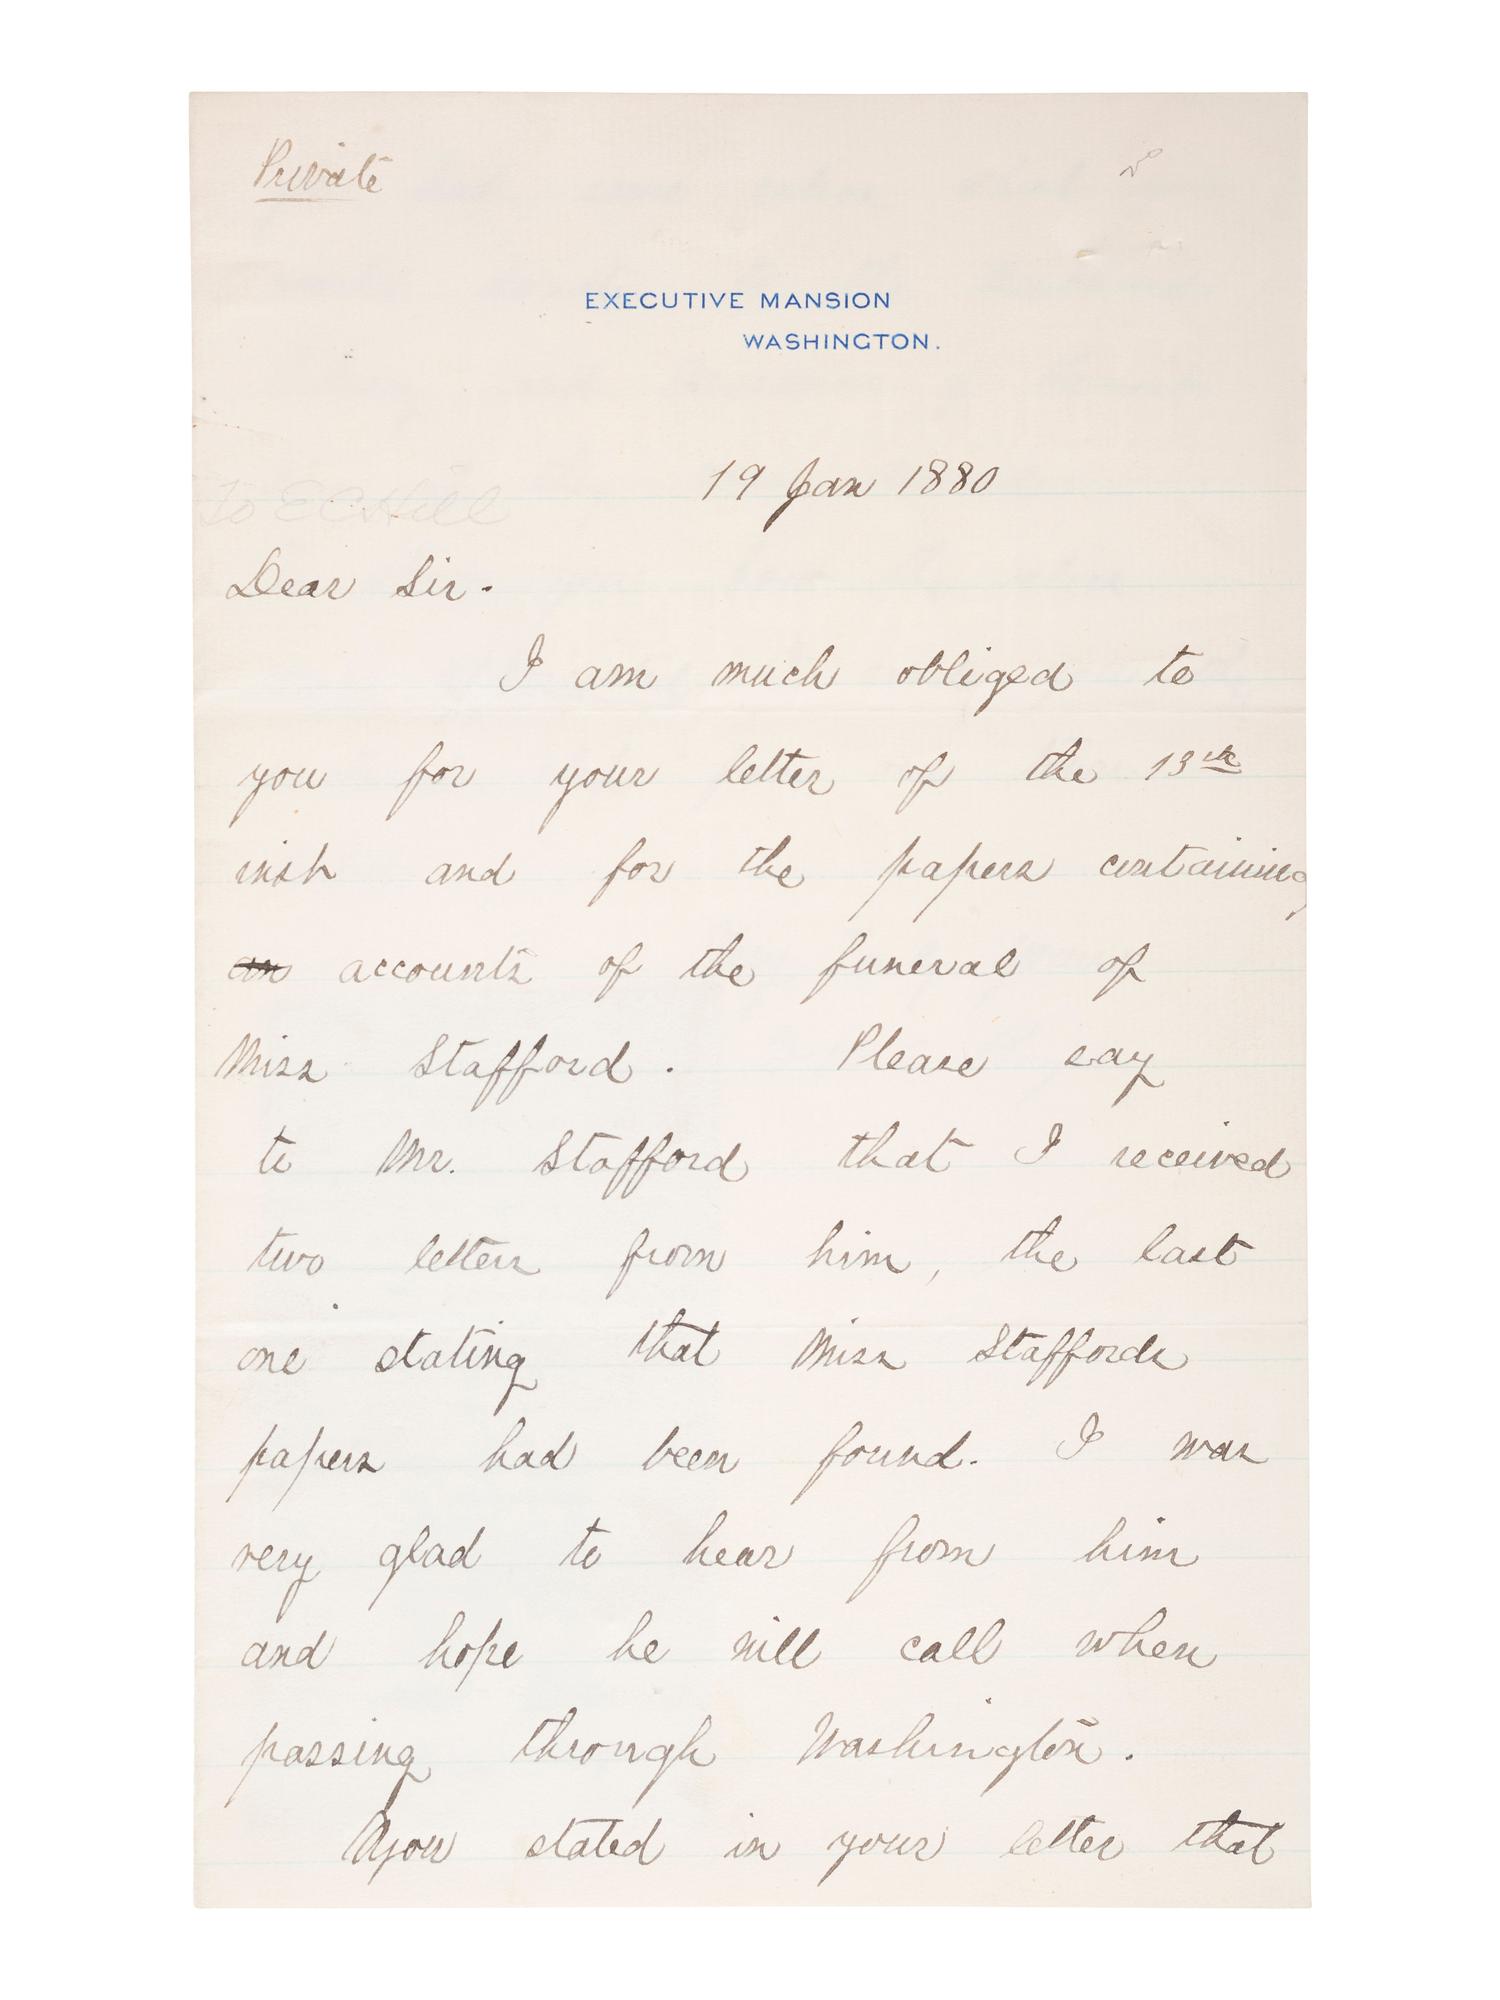 Private
EXECUTIVE MANSION
WASHINGTON.
19 Jan 1880
To E C Hill
Dear Sir.
I am much obliged to
you for your letter of the 13th
inst and for the papers containing
an accounts of the funeral of
Miss Stafford. Please say
to Mr. Stafford that I received
two letters from him, the last
one stating that Miss Staffords
papers had been found. I was
very glad to hear from him
and hope he will call when
passing through Washington.
You stated in your letter that